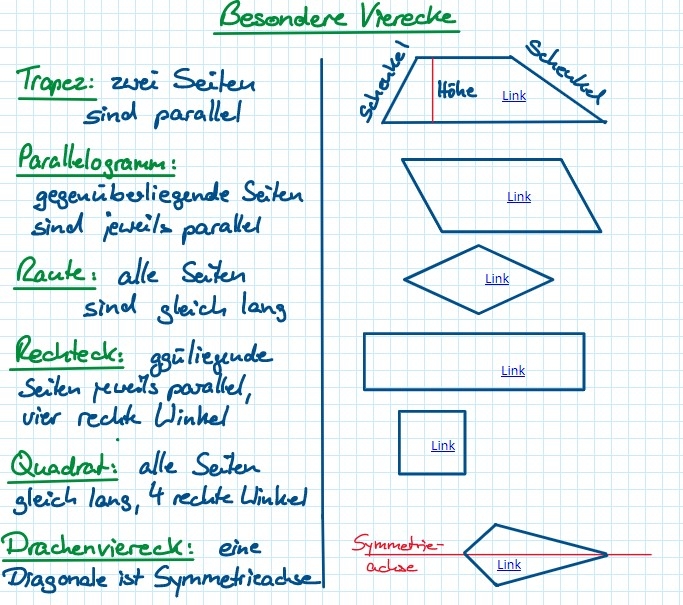 Besondere Vierecke
Trapez: zwei Seiten
sind parallel
Schenkel
Höhe
Link
Schenkel
Parallelogramm:
gegenüberliegende Seiten
sind jeweils parallel
Link
Raute: alle Seiten
sind gleich lang
Link
Rechteck: ggüliegende
Seiten jeweils parallel,
vier rechte Winkel
Link
Quadrat: alle Seiten
gleich lang, 4 rechte Winkel
Link
Drachenviereck: eine
Diagonale ist Symmetrieachse
Symmetrie-
achse
Link